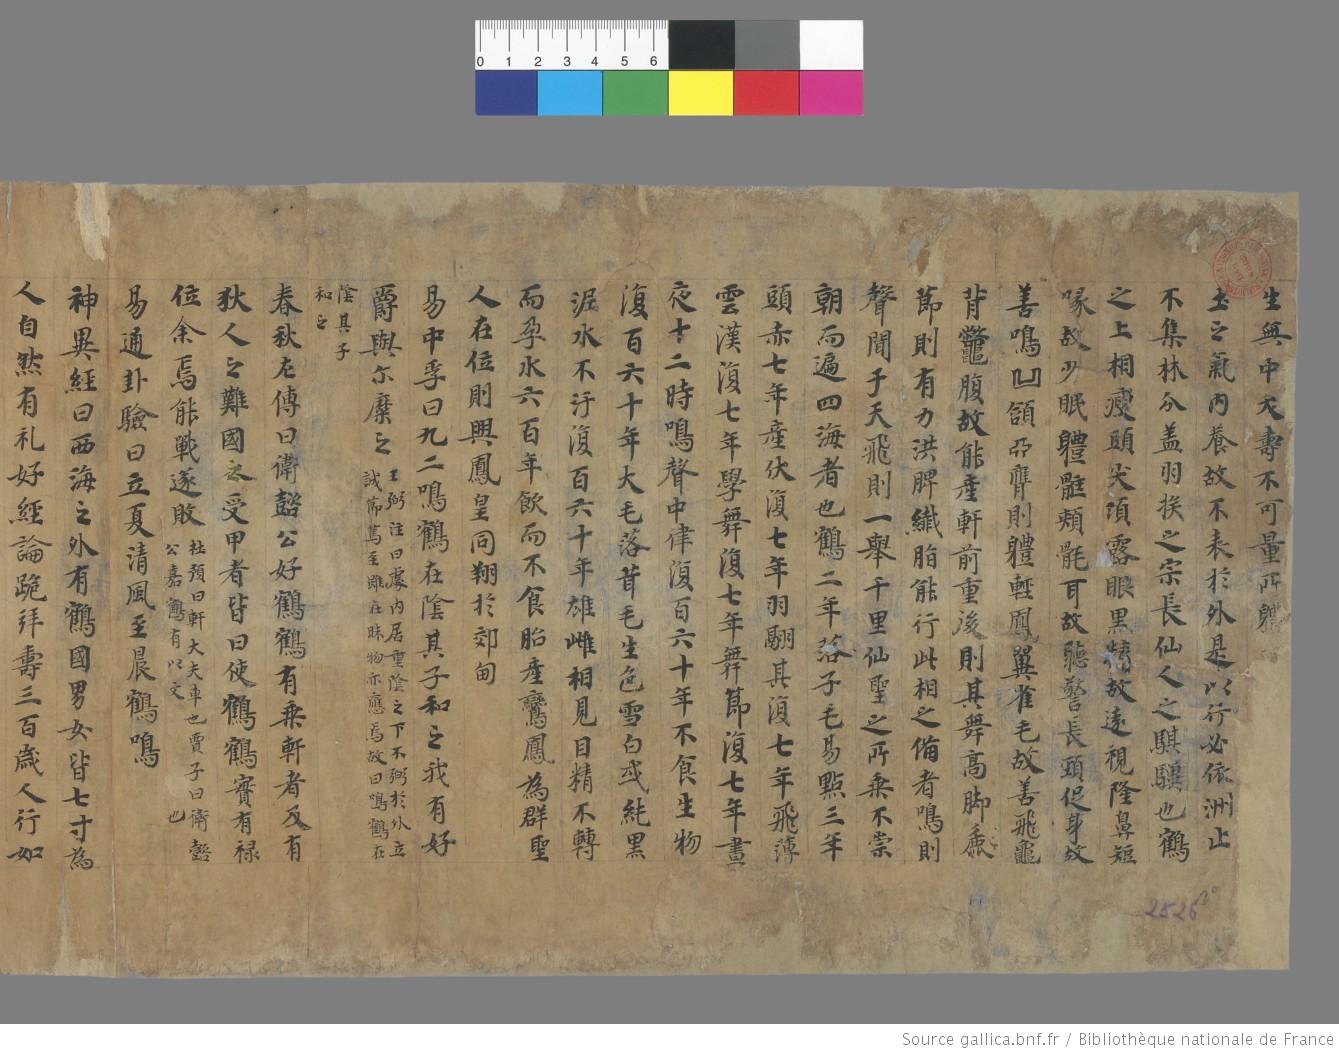 生無中夭壽不可量所軆
土之氣內養故不表於外是以行必依洲止
不集林分盖羽族之宗長仙人之騏驥也鶴
之上相瘦頭尖項露眼黑精故遠視隆鼻短
喙故少眠軆骵頰骪耳故聽警長頸促身故
善鳴凹頷亞膺則軆輕鳳翼雀毛故善飛龜
背鼈腹故能產軒前重後則其舞高脚麁
節則有力洪脾纖脂能行此相之俻者鳴則
聲聞于天飛則一舉千里仙聖之所乘不崇
朝而遍四海者也鶴二年落子毛易點三年
頭赤七年產伏復七年羽翮其復七年飛薄
雲漢復七年學舞復七年舞節復七年晝
夜十二時鳴聲中律復百六十年不食生物
復百六十年大毛落茸毛生色雪白或純黑
泥水不汙復百六十年雄雌相見目精不轉
而孕水六百年飲而不食胎產鸞鳳為群聖
人在位則與鳳皇同翔於郊甸
易中孚曰九二鳴鶴在陰其子和之我有好
爵與尔靡之
王弼注曰處內居重陰之下不弼於外立
誠篤至雖在昧物亦應焉故曰鳴鶴在
陰其子
和之
春秋左傳曰衛懿公好鶴鶴有乘軒者及有
狄人之難國人受甲者皆曰使鶴鶴實有禄
位余焉能戰遂敗
杜預曰軒大夫車也賈子曰衛懿
公嘉鶴有以文 也
易通卦驗曰立夏清風至晨鶴鳴
神異經曰西海之外有鶴國男女皆七寸為
人自然有礼好經論跪拜壽三百歲人行如
2526
0 1 2 3 4 5 6
Source gallica.bnf.fr / Bibliothèque nationale de France